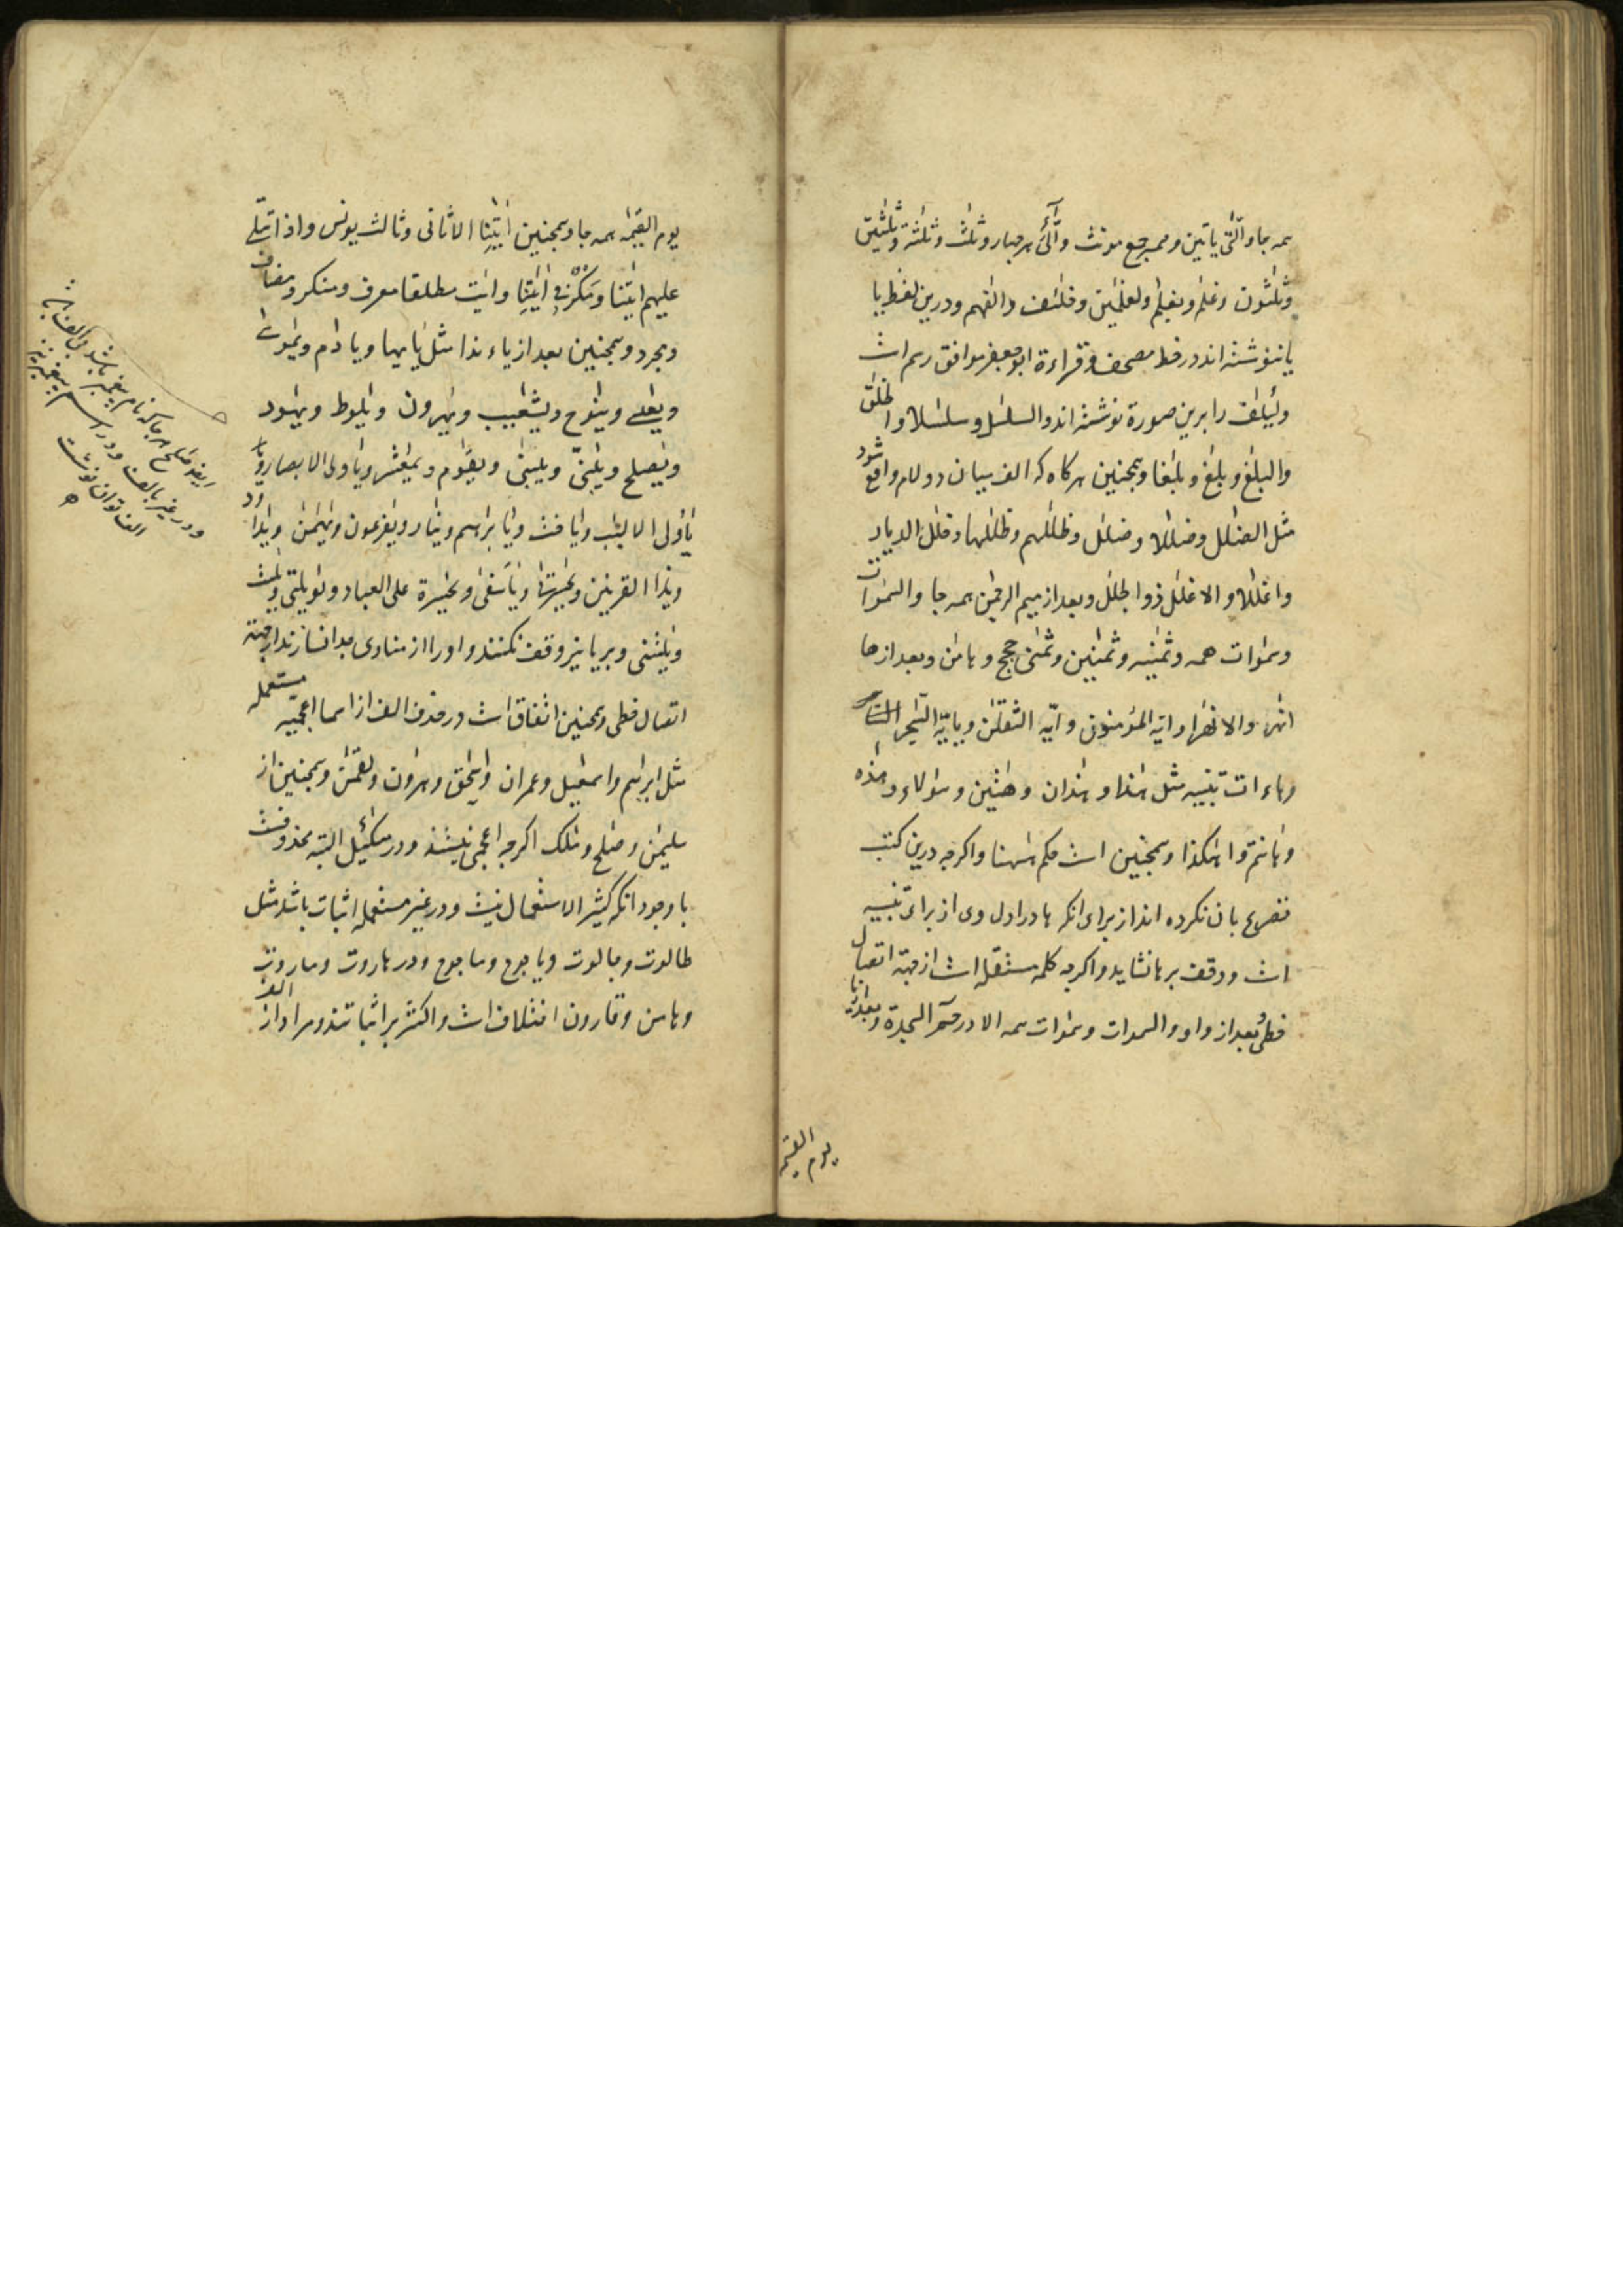 همه جا و الّتی یاتین و هم جمع مونث و الّٰئ هر چهار و ثلٰث و ثلٰثة و ثلٰثین
و ثلٰثون و غلٰم و بغلٰم و لغلٰمین و خلٰئف و الفهم و درین لفظ یا
یا ننوشته اند در خط مصحف و قراءة ابو جعفر موافق رسم است
و لئیلٰف را برین صورة نوشته اند و السلٰسل و سلٰسلا و الخلٰق
و البلٰغ و بلٰغ و بلٰغا و همچنین هر کاه که الف میان دو لام واقع شود
مثل الضلٰل و ضلٰلا و ضلٰل و ظلٰلهم و ظلٰلها و خلٰل الدیار
و اغلٰلا و الاغلٰل ذو الجلٰل و بعد از میم الرحمٰن همه جا و السمٰوات
و سمٰوات همه و ثمٰنیه و ثمٰنین و ثمٰنی حجج و هامٰن و بعد از ها
انهٰر والانهٰر و ایّه المؤمنون و ایّه الثقلٰن و یایّه السّٰحر
و هاءات تنبیه مثل هٰذا و هٰذان و هٰتین و هٰؤلاء و هٰذه
و هٰانتم و اهٰکذا و همچنین است حکم هٰهنا و اکرچه درین کتب
تصریح بان نکرده اند از برای انکه ها در اول وی از برای تنبیه
است و وقف بر ها نشاید و اکرچه کلمه مستقله است از جهة اتصال
خطی و بعد از واو و السموات و سمٰوات همه الا در حٓم السجدة و بعد از یا
یوم القیمة
یوم القیٰمة همه جا و همچنین اٰیٰتِنا الا ثانی و ثالث یونس و اذا تتلی
علیهم اٰیٰتنا و مَکْرٌ فِی اٰیٰتِنا و اٰیٰت مطلقا معرف و منکر و مضاف
و مجرد و همچنین بعد از یاء ندا مثل یٰایها و یٰادٰم و یٰموسٰی
و یٰعلی و ینٰوح و یٰشعیب و یٰهرون و یٰلوط و یٰهود
و یٰصلح و یٰبنیّ و یٰبنی و یٰقوم و یٰمعشر و یٰاولی الابصار و
یٰاولی الالبٰب و یٰافث و یٰابرٰهیم و یٰنار و یٰفرعون و یٰهٰمٰن و یٰداود
و یٰذا القرنین و یٰحسرتٰی و یٰاسَفٰی و یٰحسرة علی العباد و یٰویلتی و یٰلیت
و یٰلیتنی و بر یا نیز وقف نکنند و او را از منادی جدا نسازند از جهة
اتصال خطی و همچنین اتفاق است در حذف الف از اسما اعجمیّه مستعمله
مثل ابرٰهیم و اسمٰعیل و عمرٰن و اسحٰق و هٰرون و لقمٰن و همچنین از
سلیمٰن و صٰلح و مٰلک اکرچه اعجمی نیستند و در میکٰئیل البته محذوفست
با وجود انکه کثیر الاستعمال نیست و در غیر مستعمله اثبات باشد مثل
طالوت و جالوت و یاجوج و ماجوج و در هاروت و ماروت
و هامن و قارون اختلاف است و اکثر بر اثباتند و مراد از الف